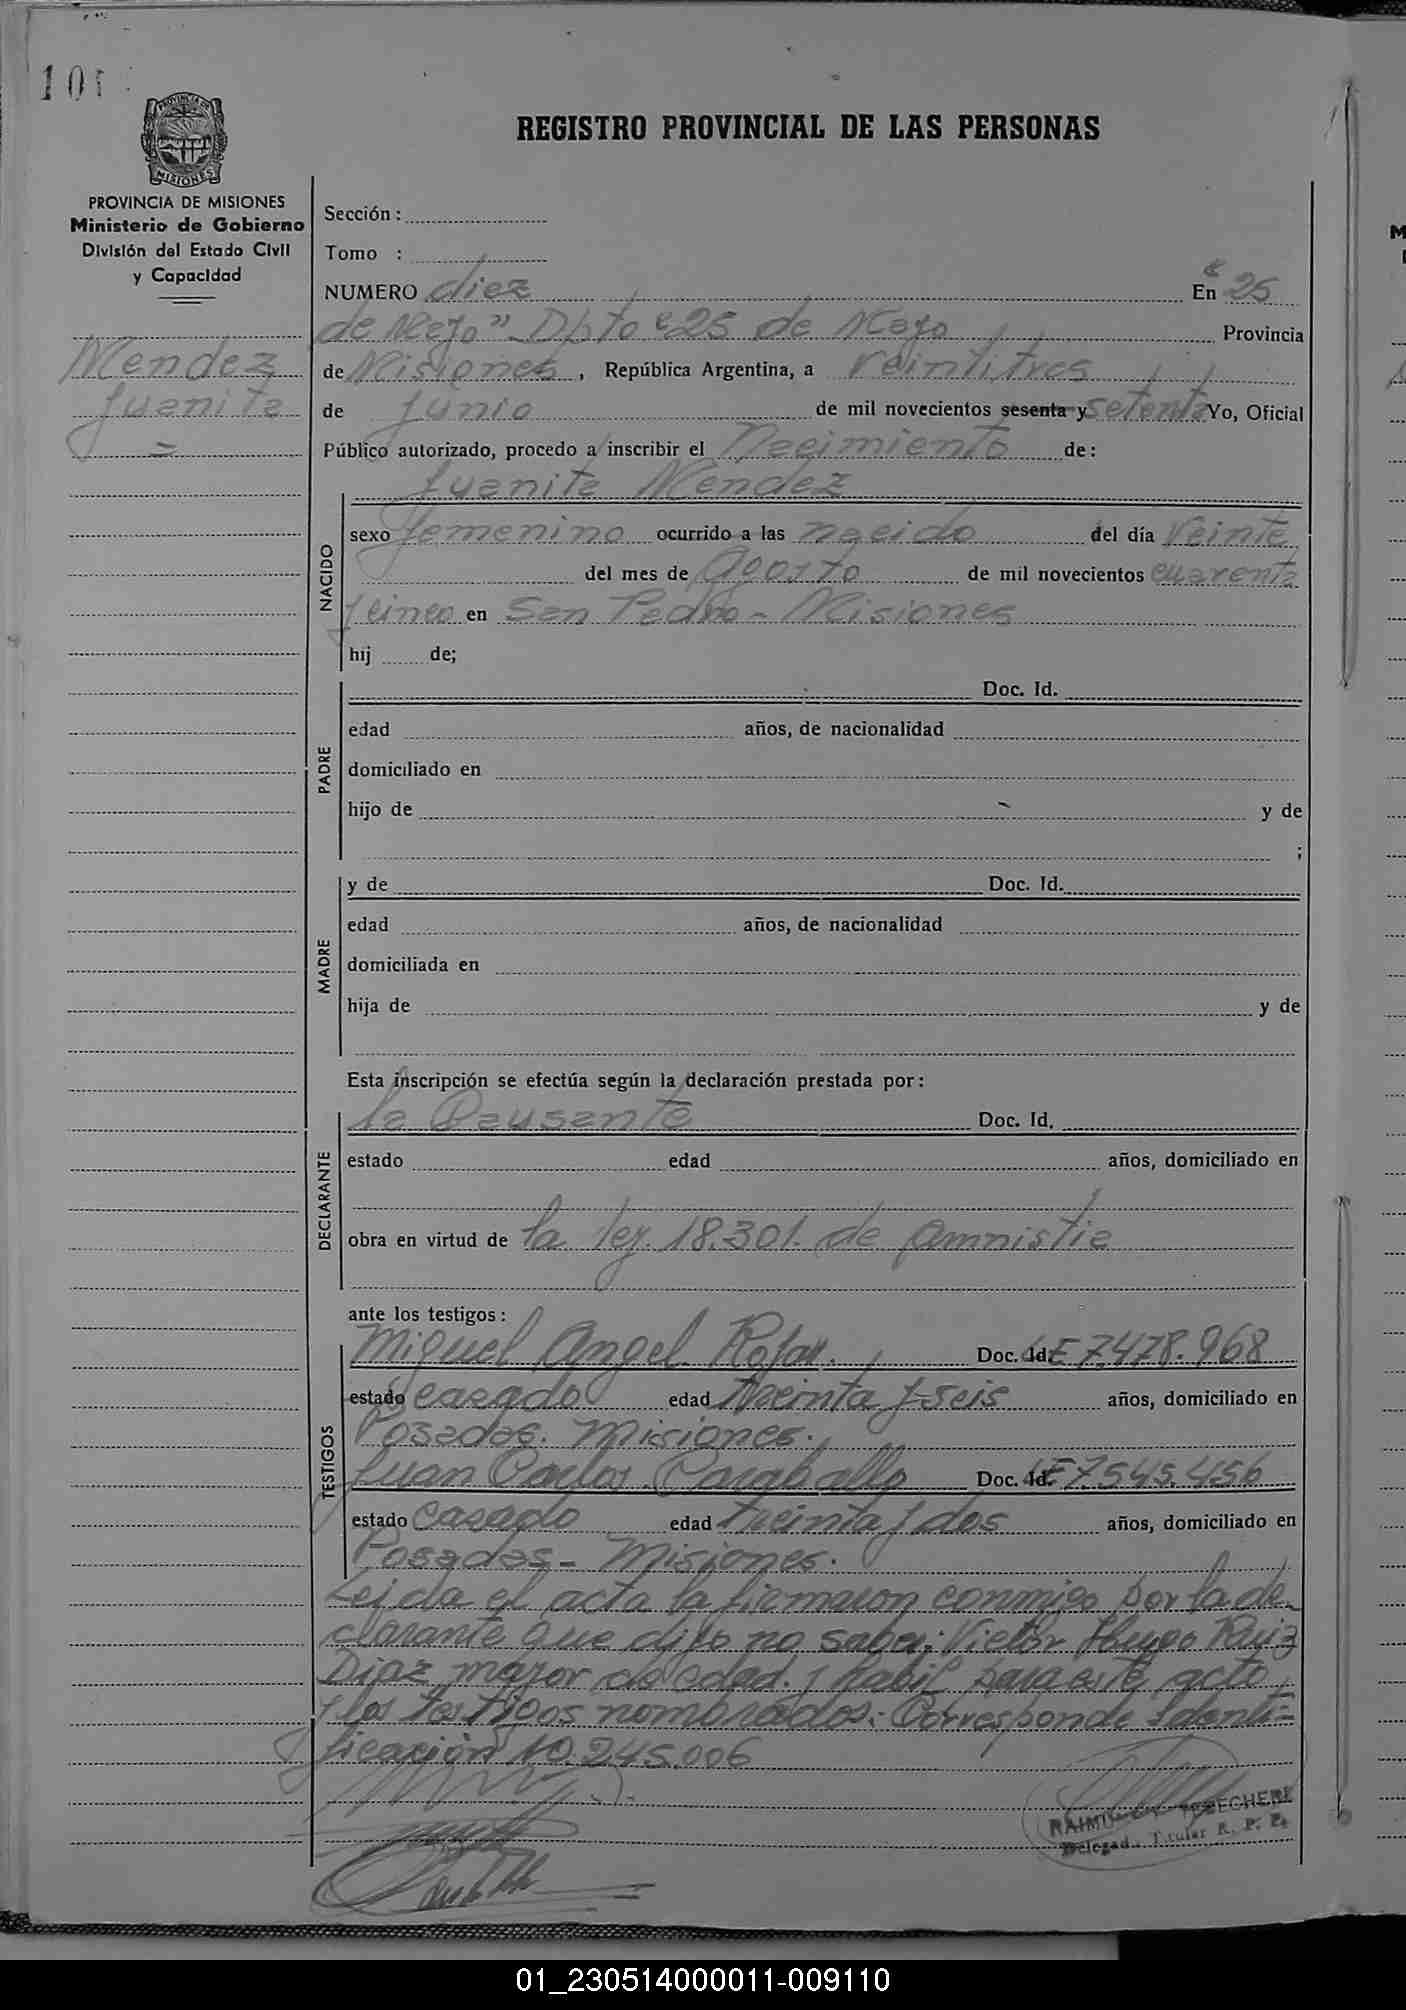 101
PROVINCIA DE
MISIONES
REGISTRO PROVINCIAL DE LAS PERSONAS
PROVINCIA DE MISIONES
Ministerio de Gobierno
División del Estado Civil
y Capacidad
Mendez
Juanita
Sección :
Tomo :
NUMERO diez En "25
de Mayo" Dpto "25 de Mayo Provincia
de Misiones, República Argentina, a veintitres
de junio de mil novecientos sesenta y setenta Yo, Oficial
Público autorizado, procedo a inscribir el Nacimiento de:
Juanita Mendez
NACIDO
sexo femenino ocurrido a las nacido del día veinte
del mes de Agosto de mil novecientos cuarenta
y cinco en San Pedro - Misiones
hij de;
PADRE
Doc. Id.
edad años, de nacionalidad
domiciliado en
hijo de y de
;
MADRE
y de Doc. Id.
edad años, de nacionalidad
domiciliada en
hija de y de
Esta inscripción se efectúa según la declaración prestada por:
DECLARANTE
la Causante Doc. Id.
estado edad años, domiciliado en
obra en virtud de la ley. 18.301. de amnistia
ante los testigos:
TESTIGOS
Miguel Angel Rojas. Doc. Id. LE 7.478.968
estado casado edad treinta y seis años, domiciliado en
Posadas. Misiones.
Juan Carlos Caraballo Doc. Id. LE 7.545.456
estado casado edad treinta y dos años, domiciliado en
Posadas - Misiones.
Leida el acta la firmaron conmigo por la de-
clarante que dijo no saber: Victor Hugo Ruiz
Diaz mayor de edad. y habil para este acto
y los testigos nombrados: Corresponde Identi-
ficación 10.245.006
Delegado Titular R. P. P.
01_230514000011-009110